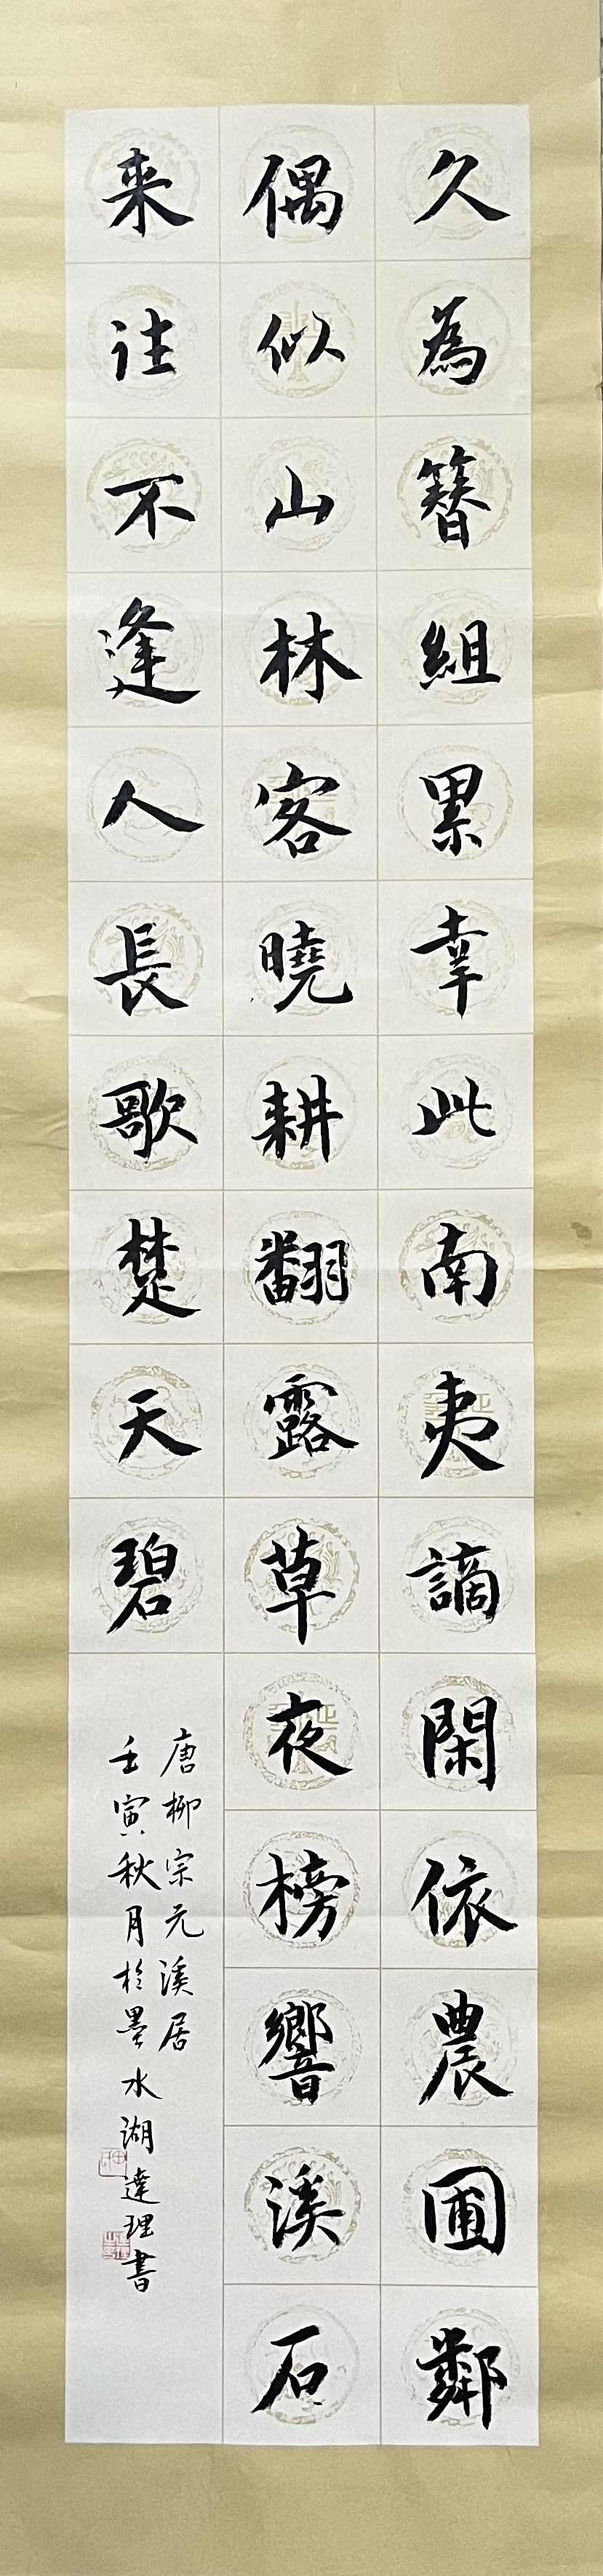 久為簪組累幸此南夷謫閑依農圃鄰
偶似山林客曉耕翻露草夜榜響溪石
来往不逢人長歌楚天碧
唐柳宗元溪居
壬寅秋月於墨水湖達理書